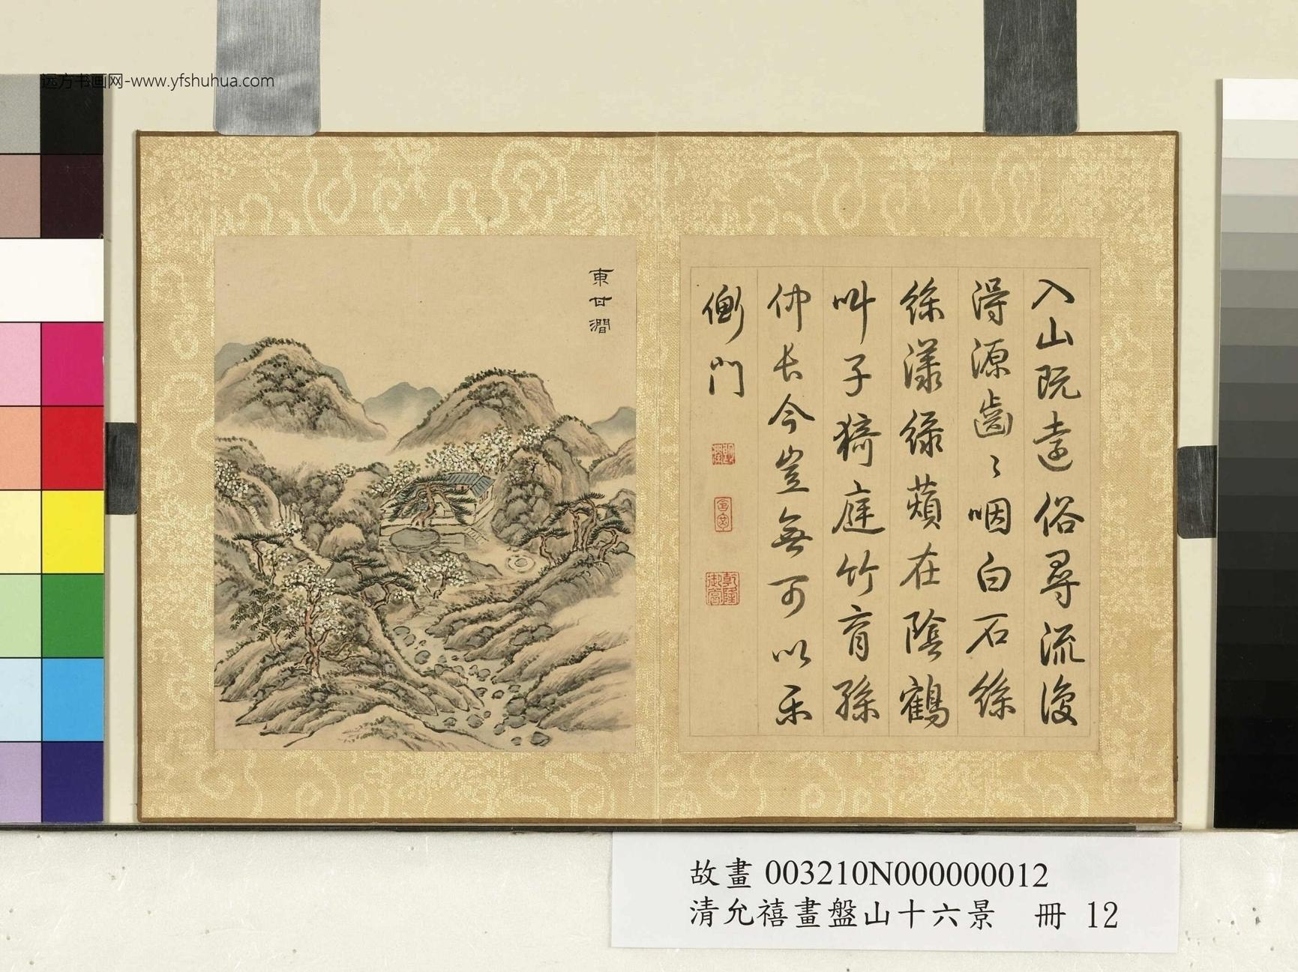 远方书画网-www.yfshuhua.com
入山既遠俗尋流復
得源齒〻咽白石徐
徐漾綠蘋在陰鶴
叫子猗庭竹育孫
仲長今豈無可以樂
衡門
東甘澗
故畫003210N000000012
清允禧畫盤山十六景 冊 12